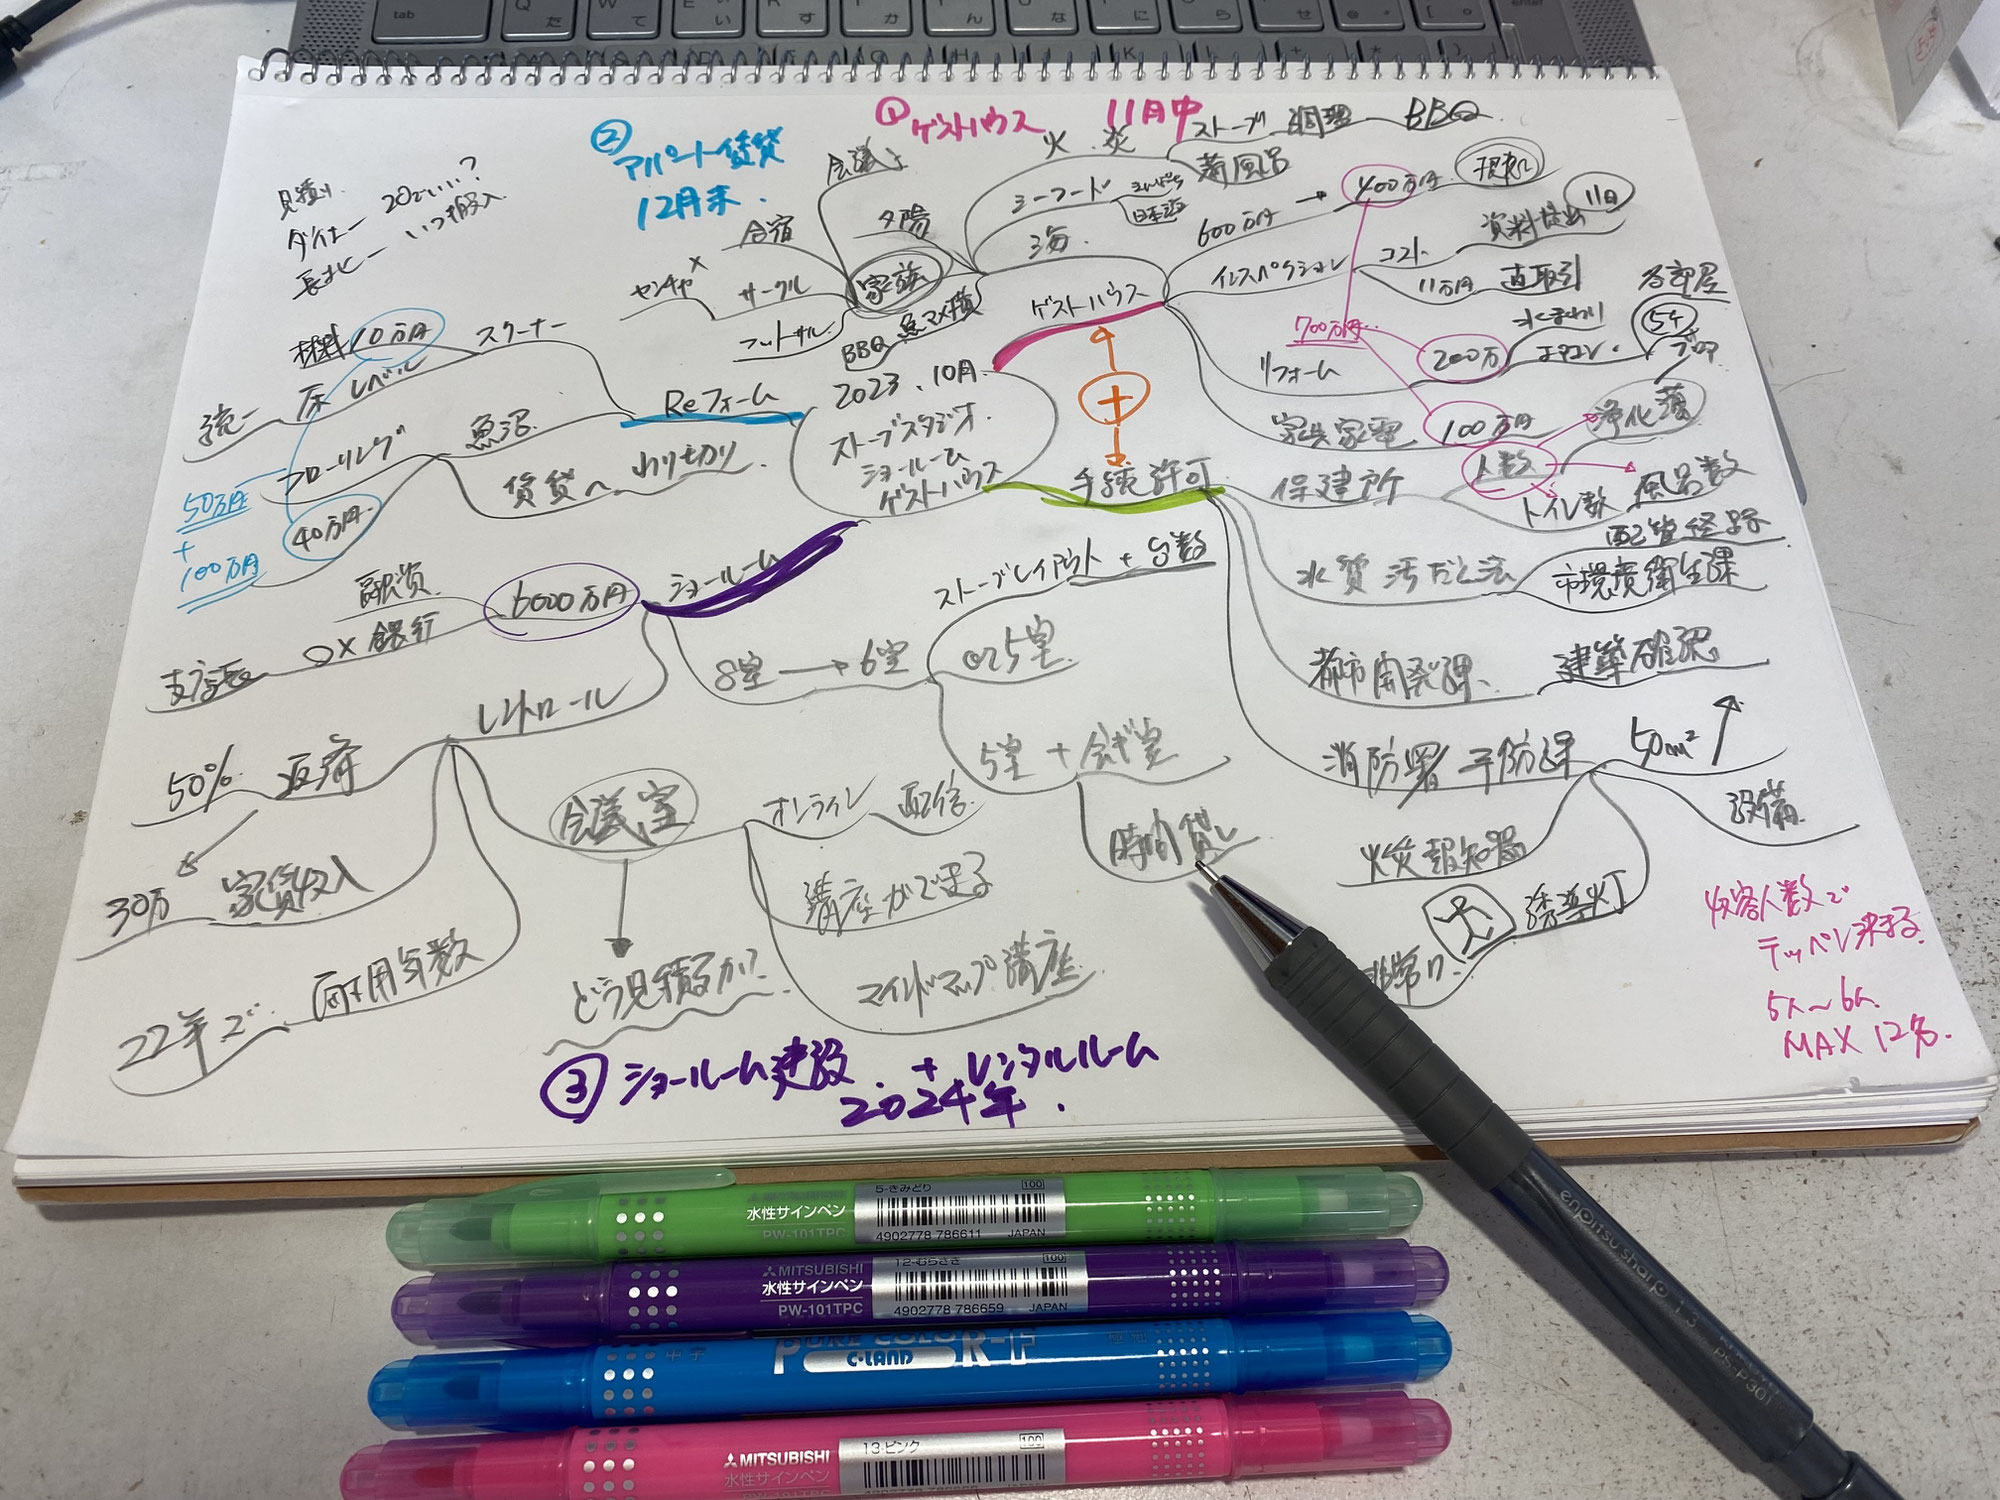 ①ゲストハウス 11月中
②アパート賃貸
12月末.
見積り.
ダイナー 20でいい?
火.炎
ストーブ 調理 BBQ
薪風呂
シーフード
日本海
海.
夕陽
合宿
サークル
フットサル.
家族
BBQ
ゲストハウス
600万円 → 400万円.
インスペクション
コスト.
資料提出 11日
11万円 直取引
リフォーム
700万円..
200万
水まわり
エアコン.
各部屋
5ケ
家具家電
100万円
2023.10月.
ストーブスタジオ.
ショールーム
ゲストハウス
+
手続許可
保建所
人数
浄化槽
風呂数
トイレ数
水質汚だく法
配管経路
市環境衛生課
都市開発課、
建築確認
消防署 予防課
50cm²
設備
火災報知器
誘導灯
非常口
収容人数で
5人〜6人
MAX 12名.
Reフォーム
スクーナー
材料 10万円
床 レベル
統一
フローリング
魚沼.
40万円.
50万円
+
100万円
賃貸へ わり切り.
ショールーム
6000万円
融資.
銀行
支店長
8室 → 6室
ストーブレイアウト + 台数
or 5室.
5室 + 会ギ室
時間貸し
50%. 返済
30万 家賃収入
耐用年数
22年で
会議室
どう見積るか?
オンライン 配信
講座ができる
マインドマップ講座.
③ショールーム建設. + レンタルルーム
2024年.
tab
5-きみどり 100
水性サインペン
PW-101TPC
4902778 786611 JAPAN
12-むらさき 100
MITSUBISHI
水性サインペン
PW-101TPC
4902778 786659 JAPAN
PURE COLOR-F
C・LAND
13-ピンク 100
MITSUBISHI
水性サインペン
PW-101TPC
enpitsu sharp 1.3
PS-P301